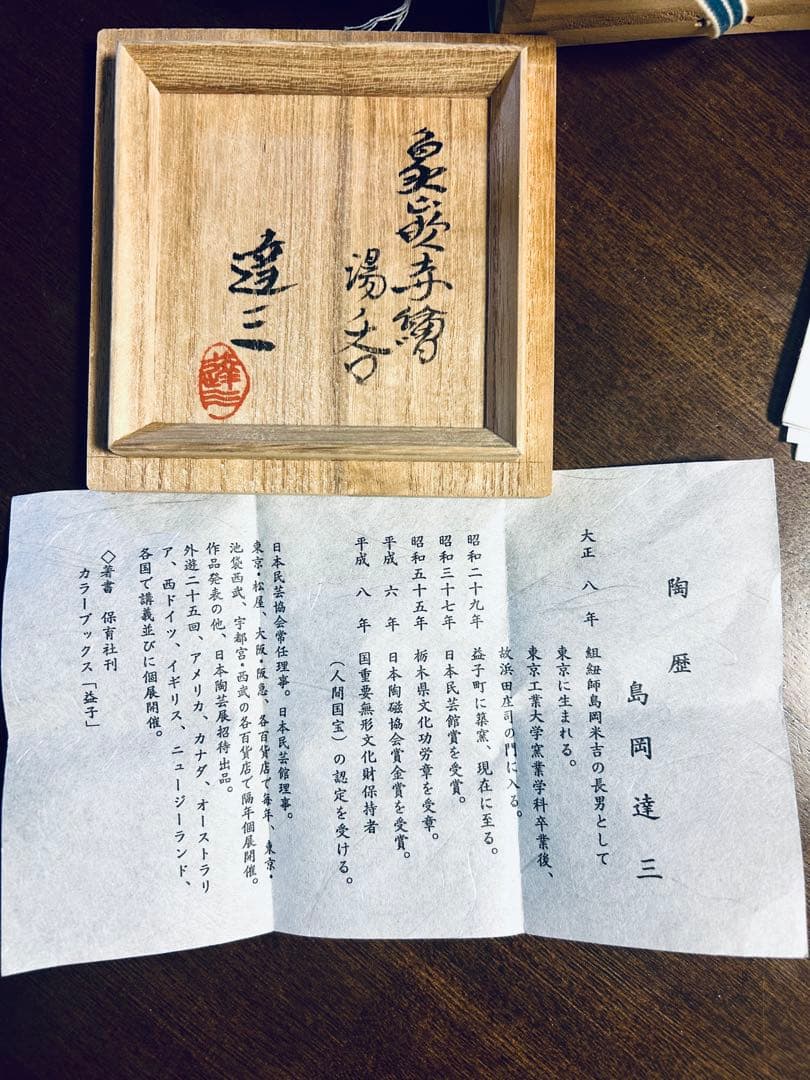 象嵌赤繪
湯呑
達三
達三
陶歴
島岡達三
大正八年 組紐師島岡米吉の長男として
東京に生まれる。
東京工業大学窯業学科卒業後、
故浜田庄司の門に入る。
昭和二十九年 益子町に築窯、現在に至る。
昭和三十七年 日本民芸館賞を受賞。
昭和五十五年 栃木県文化功労章を受章。
平成六年 日本陶磁協会賞金賞を受賞。
平成八年 国重要無形文化財保持者
(人間国宝)の認定を受ける。
日本民芸協会常任理事。日本民芸館理事。
東京・松屋、大阪・阪急、各百貨店で毎年、東京・
池袋西武、宇都宮・西武の各百貨店で隔年個展開催。
作品発表の他、日本陶芸展招待出品。
外遊二十五回、アメリカ、カナダ、オーストラリ
ア、西ドイツ、イギリス、ニュージーランド、
各国で講義並びに個展開催。
◇著書 保育社刊
カラーブックス「益子」